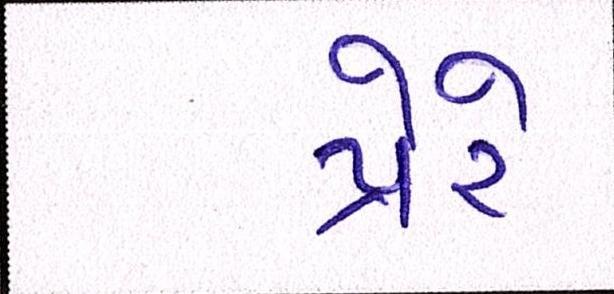 પ્રેરે